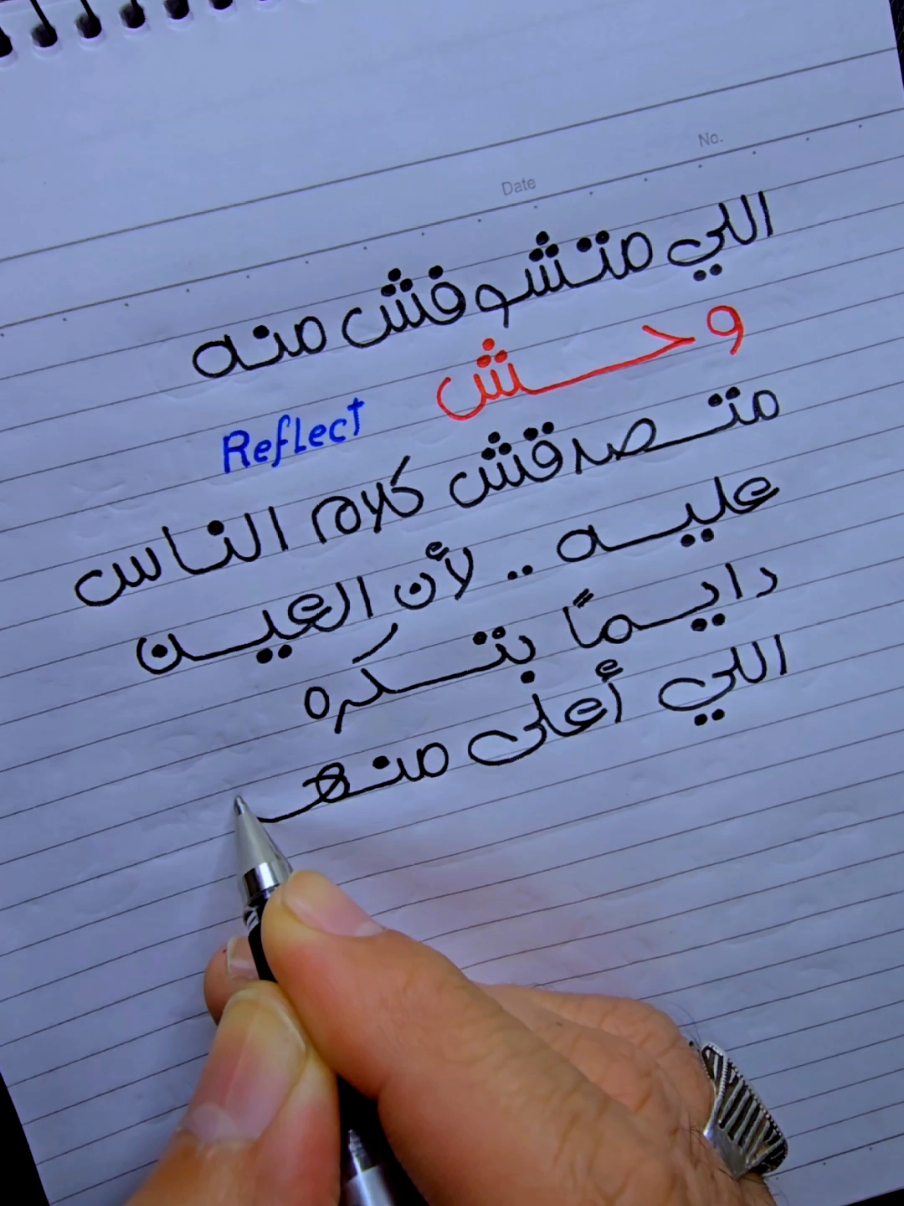 No.
Date
اللي متشوفش منه
وحش
Reflect
متصدقش كلام الناس
عليه .. لأن العين
دايمًا بتكره
اللي أعلى منهـ